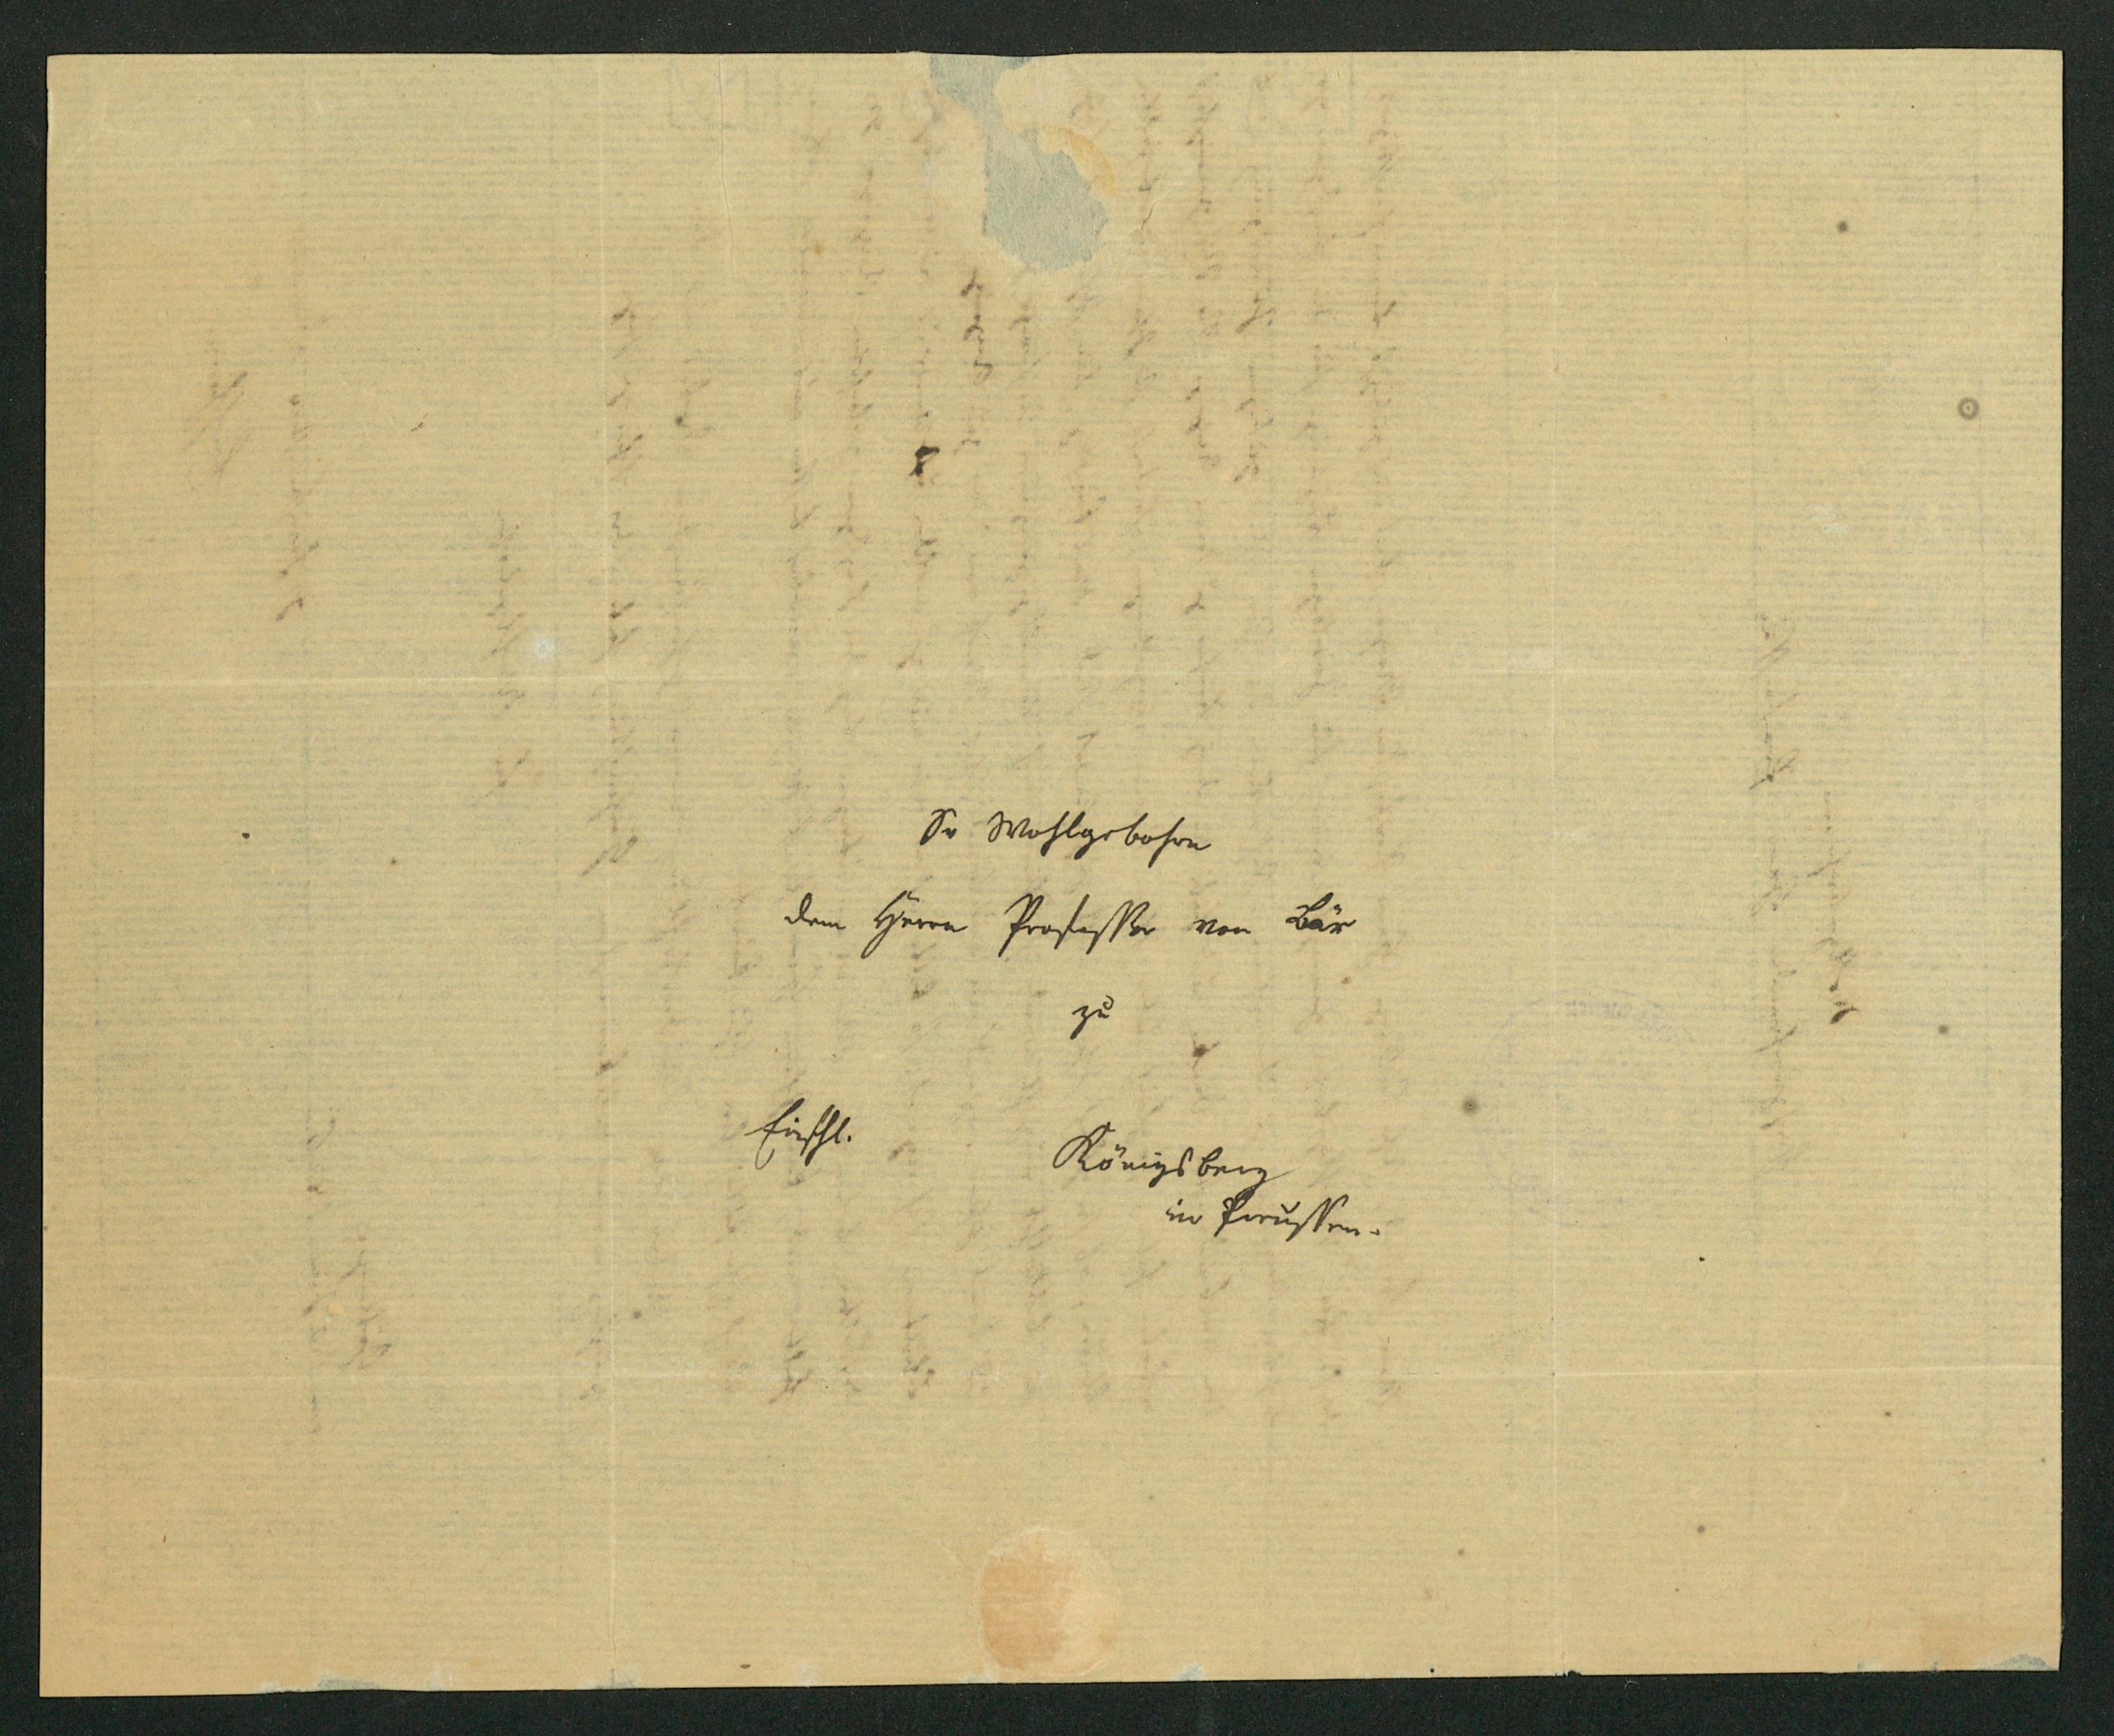 Sr Wohlgebohrn
dem Herrn Professor von Bär
zu
Einschl.
Königsberg
in Preussen.